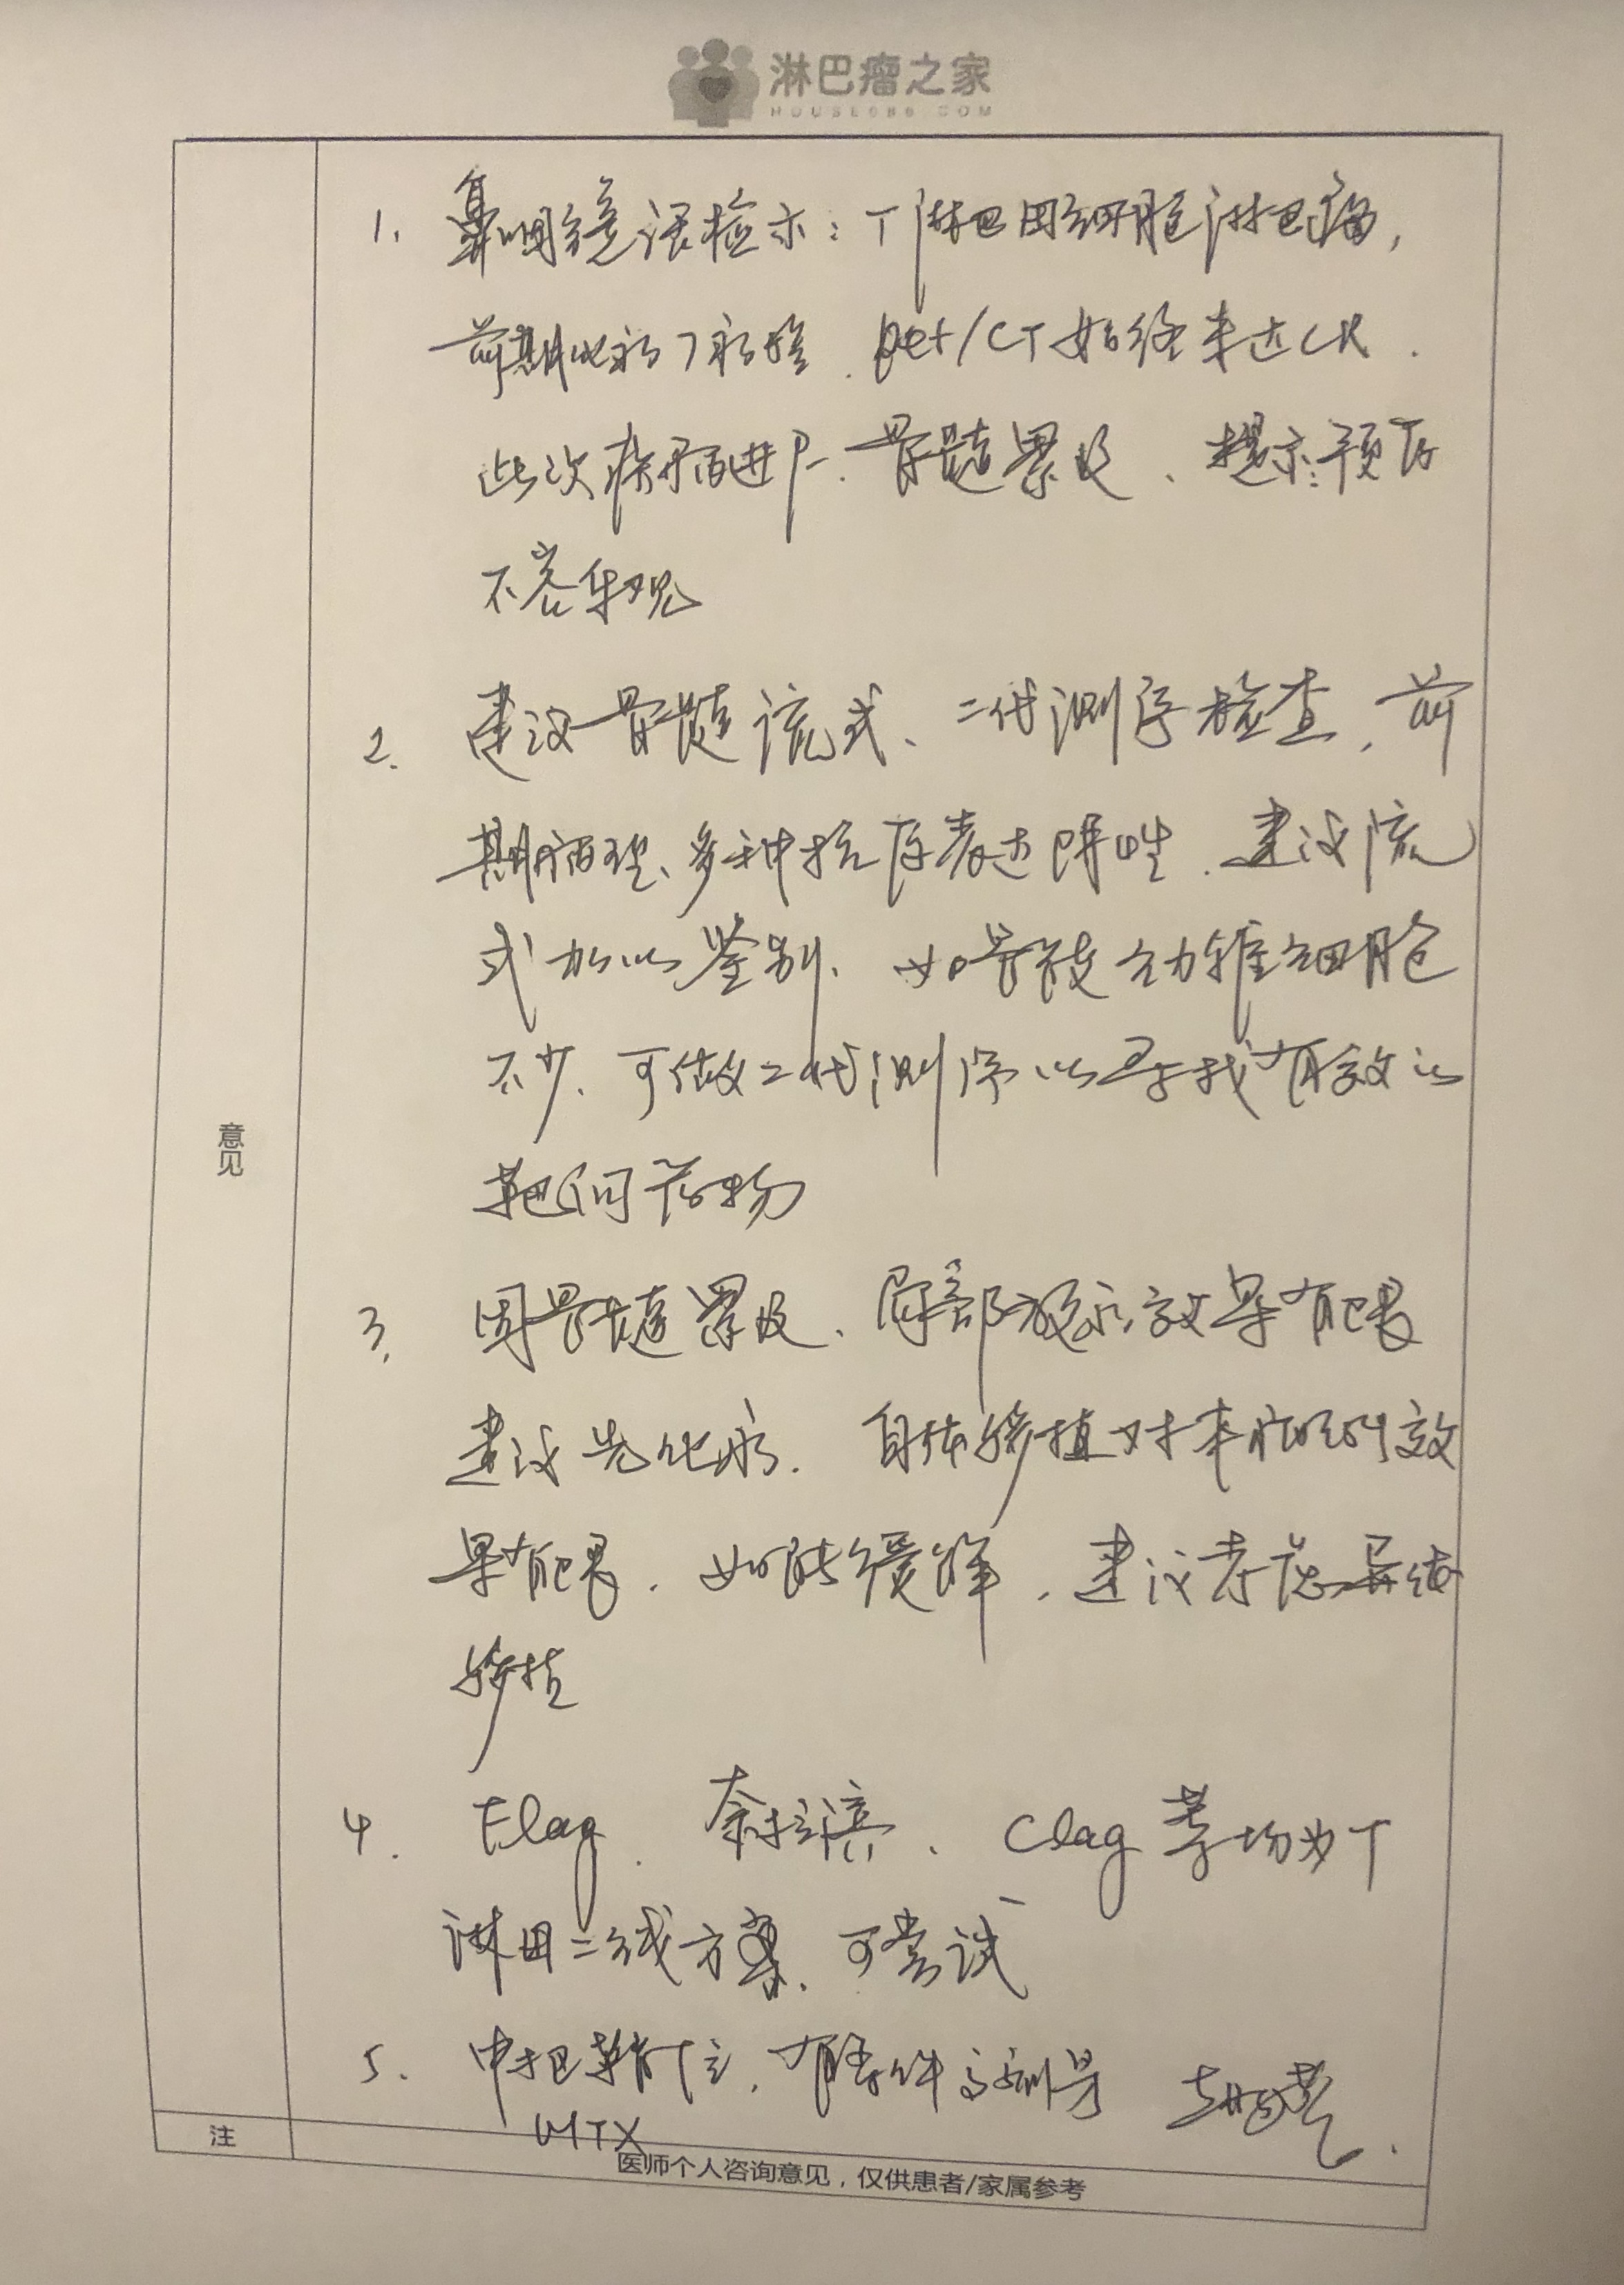 淋巴瘤之家
HOUSE086.COM
意见
1. 鼻咽镜活检示：T淋巴母细胞淋巴瘤，
前期化疗7疗程．pet/CT始终未达CR．
此次疾病进展、骨髓累及、提示预后
不容乐观
2. 建议骨髓流式、二代测序检查，前
期病理、多种抗原表达阴性．建议流
式加以鉴别、如骨髓幼稚细胞
不少、可做二代测序以寻找有效的
靶向药物
3. 因骨髓累及、局部放疗效果有限
建议先化疗．自体移植对本病的效
果有限．如能缓解，建议考虑异体
移植
4. Flag．奈拉滨、Clag等均为T
淋母二线方案．可尝试
5. 中枢
MTX
注
医师个人咨询意见，仅供患者/家属参考